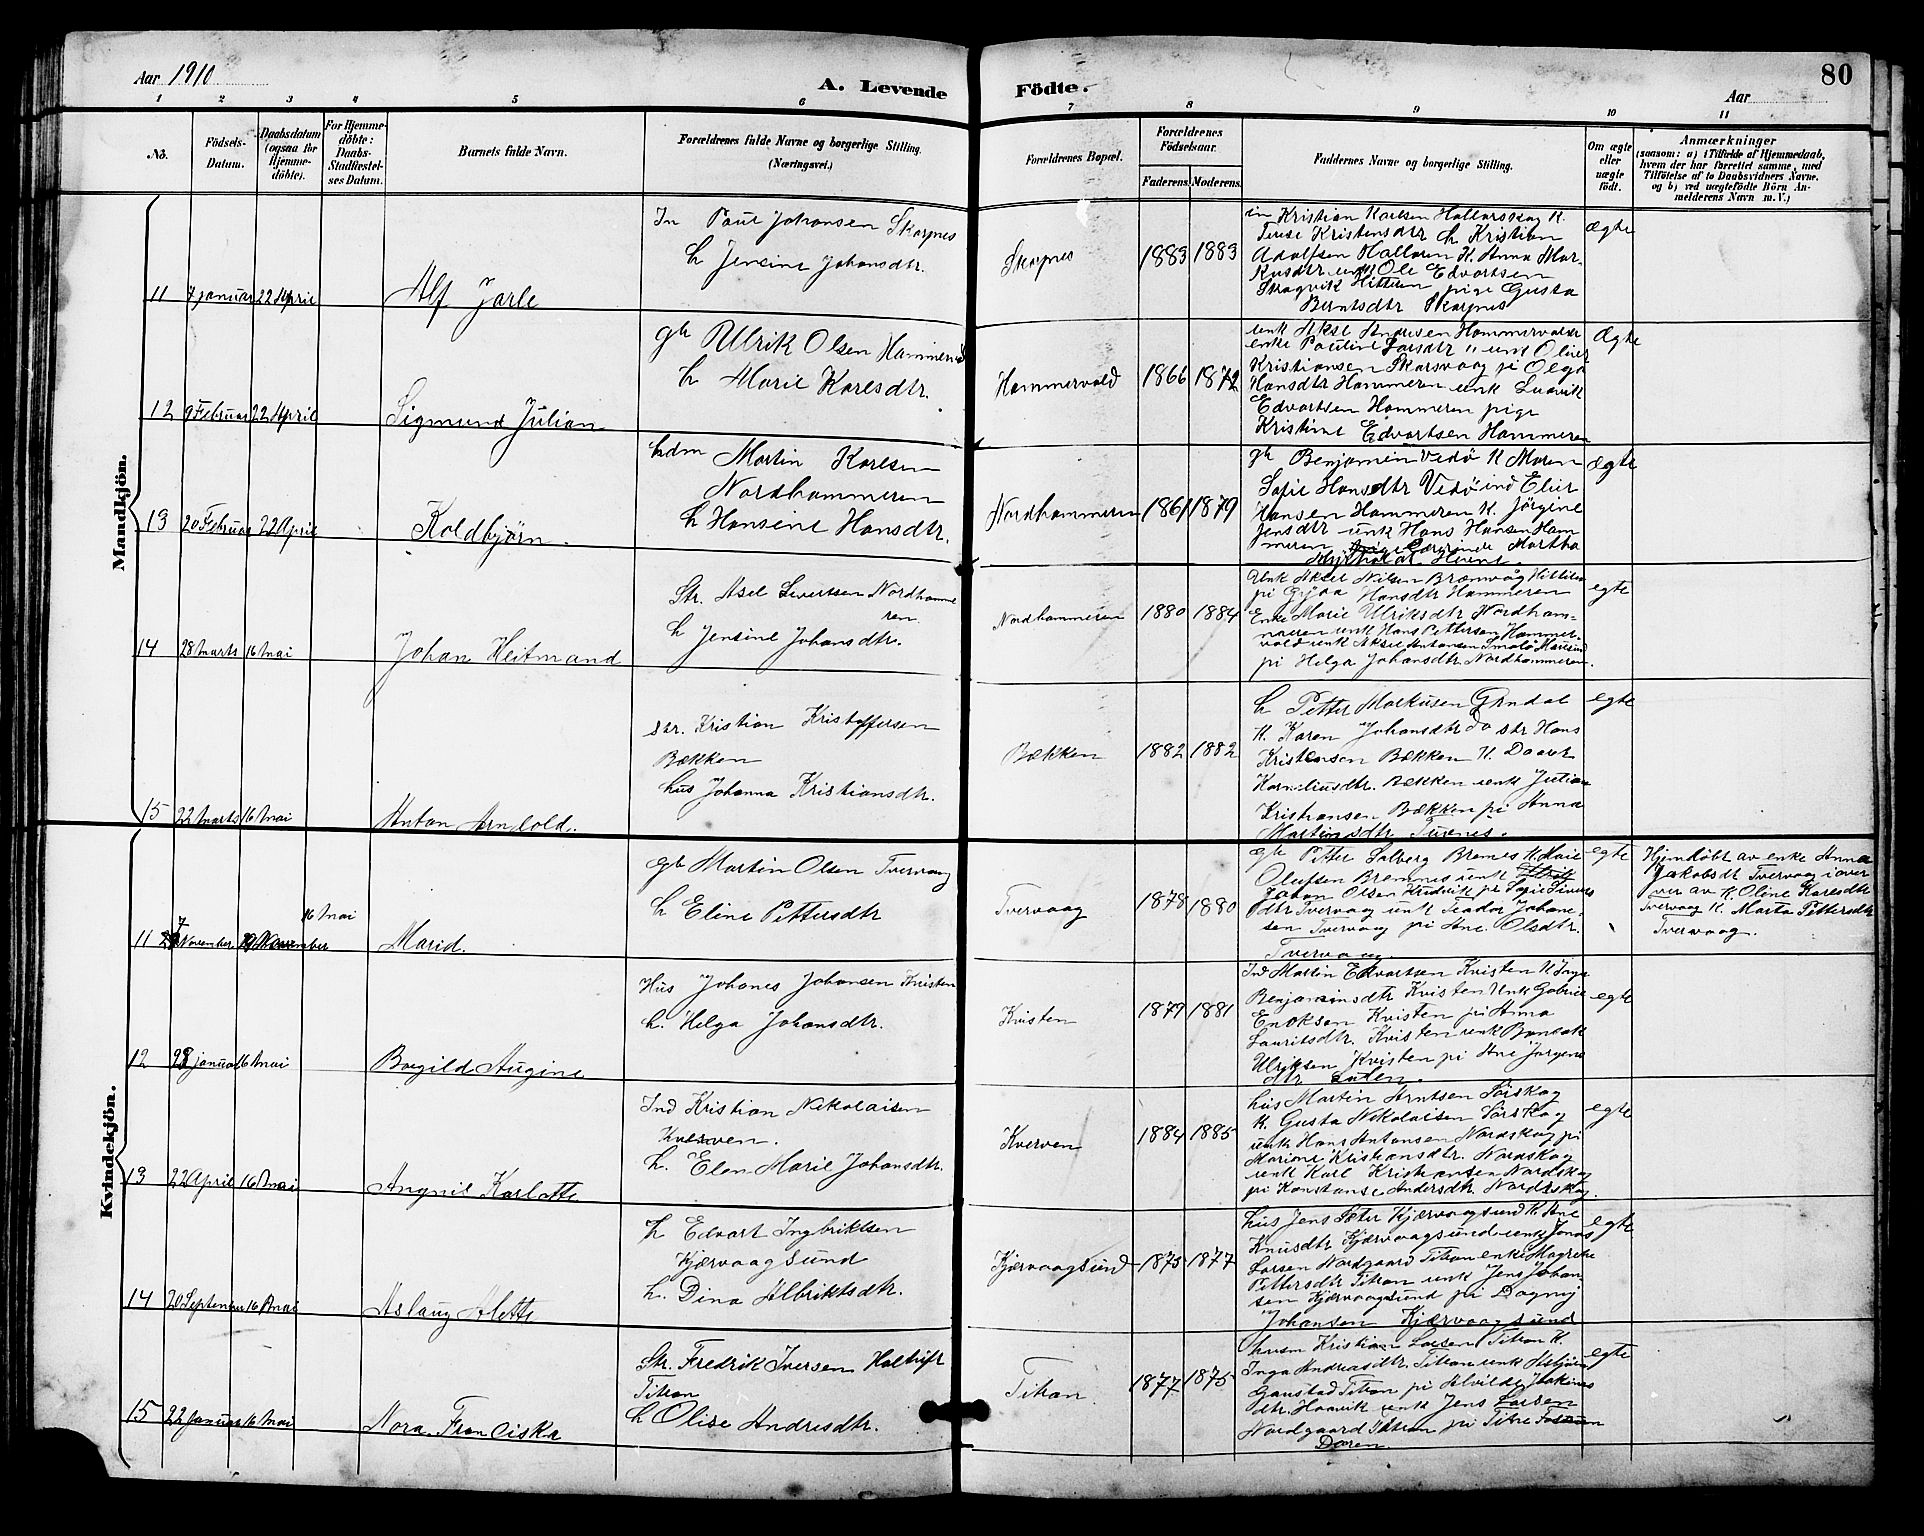 Aar 1910
A. Levende
Födte.
Aar
80
1 2 3 4 5 6 7 8 9 10 11
No.
Födsels-
Datum.
Daabsdatum
(ogsaa for
Hjemme-
döbte).
For Hjemme-
döbte:
Daabs-
Stadfæstel-
ses Datum.
Barnets fulde Navn.
Forældrenes fulde Navne og borgerlige Stilling.
(Næringsvei.)
Forældrenes Bopæl.
Forældrenes
Födselsaar.
Faderens.
Moderens.
Faddernes Navne og borgerlige Stilling.
Om ægte
eller
uægte
födt.
Anmærkninger
(saasom: a) i Tilfælde af Hjemmedaab,
hvem der har forrettet samme, med
Tilföielse af to Daabsvidners Navne,
og b) ved uægtefödte Börn An-
melderens Navn m. V.)
Mandkjön.
11 4 januar 22 April
Alf Jarle
In Paul Johansen Skarpnes
h Jensine Johansdtr.
Skapnes
1883 1883
Kristian Karlsen Hallarskag K.
Terese Kristensdtr h Kristian
Adolfsen Hallaren K. Anna Mar-
kusdtr unk Ole Edvartsen
Skagvik Hitteren pige Gusta
Berntsdtr Skarpnes
ægte
12 9 Februar 22 April
Sigmund Julian
gh Ulrik Olsen Hammervold
h Marie Karlsdtr.
Hammervold
1866 1872
unk Aksel Andresen Hammervolde
enke Pauline Larsdtr " unk Oliver
Kristiansen Skarsvaag pi Olga
Hansdtr Hammeren unk Ludvik
Edvartsen Hammeren pige
Kristine Edvartsen Hammeren
Ægte
13 20 Februar 22 April
Koldbjörn.
hdm Martin Karlsen
Nordhammeren
h Hansine Hansdtr.
Nordhammeren
1861 1879
gh Benjamin Vedö K Maren
Sofie Hansdtr Vedö ind Elier
Hansen Hammeren K. Jörgine
Jensdtr unk Hans Hansen Ham-
meren Martha
Hevne.
ægte
14 28 Marts 16 Mai
Johan Heitmand
Str. Asel Sivertsen Nordhamme
ren.
h Jensine Johansdtr.
Nordhammeren
1880 1884
Unk Aksel Nilsen Bræmvåg Hitteren
pi Gyda Hansdtr Hammeren
Enke Marie Ulriksdtr Nordham-
meren unk Hans Pettersen Hammer-
vold unk Aksel Antonsen
pi Helga Johansdtr Nordhammeren.
egte
15 22 Marts 16 Mai
Anton Arnfold.
str. Kristian Kristoffersen
Bækken
hus Johanna Kristiansdtr.
Bækken
1882 1882
h Petter Markusen Gjndal
K. Karen Johansdtr do str Hans
Kristensen Bækken K.
Korneliusdtr. Bækken unk Julian
Kristiansen Bækken pi Anna
Martinsdtr Tuvnes.
egte
Kvindekjön.
11 7 November 16 Mai
Marid.
gh Martin Olsen Tvervaag
h Eline Pettersdtr
Tvervaag
1878 1880
gh Petter Solberg Bremnes K. Marie
Olufsen Bremnes unk
Johan Olsen pi Sofie Sivers
dtr Tvervaag unk Teador Johane-
sen Tvervaag pi Ane Olsdtr.
Tvervaag.
egte
Hjemdöbt av enke Anna
Jakobsdtr Tvervaag i over
ver av K. Oline Karesdtr
Tvervaag K. Marta Pettersdtr
Tvervaag.
12 28 januar 16 Mai
Borgild Augine
Hus Johanes Johansen Kvisten
h. Helga Johansdtr.
Kvisten
1879 1881
Ind Martin Edvartsen Kvisten K Inga
Benjaminsdtr Kvisten Unk Gabriel
Enoksen Kvisten pi Anna
Lauritsdtr. Kvisten unk
Ulriksen Kvisten pi Ane Jörgens
dtr
egte
13 22 April 16 Mai
Angnil Karlotte
Ind Kristian Nikolaisen
Kverven.
h. Elen Marie Johansdtr.
Kverven
1884 1885
hus Martin Arntsen Sörskag
K. Gusta Nikolaisen Sörskag
unk Hans Antonsen Nordskag pi
Marione Kristiansdtr. Nordskag
unk Karl Kristiansen Nordskag
pi Konstanse Andersdtr. Nordskag.
egte
14 20 September 16 Mai
Aslaug Aletta
h Edvart Ingbriktsen
Kjærvaagsund
h. Dina Albriktsdtr.
Kjærvaagsund
1873 1877
hus Jens Sæter Kjærvaagsund K. Ane
Knusdtr Kjærvaagsund unk Jonas
Larsen Nordgaard Titran enke Magrete
Pettersdtr Titran unk Jens Johan-
sen Kjærvaagsund pi Dagny
Johansen Kjærvaagsund
egte
15 22 Januar 16 Mai
Nora Franciska
Str. Fredrik Iversen Holtuft
Titran
h Olise Andresdtr.
Titran
1877 1875
husm Kristian Larsen Titran K.
Inga Andreasdtr. Titran unk
Gaustad Titran pi Alvilde
dtr. unk Jens Larsen
Nordgaard Titran pi
egte